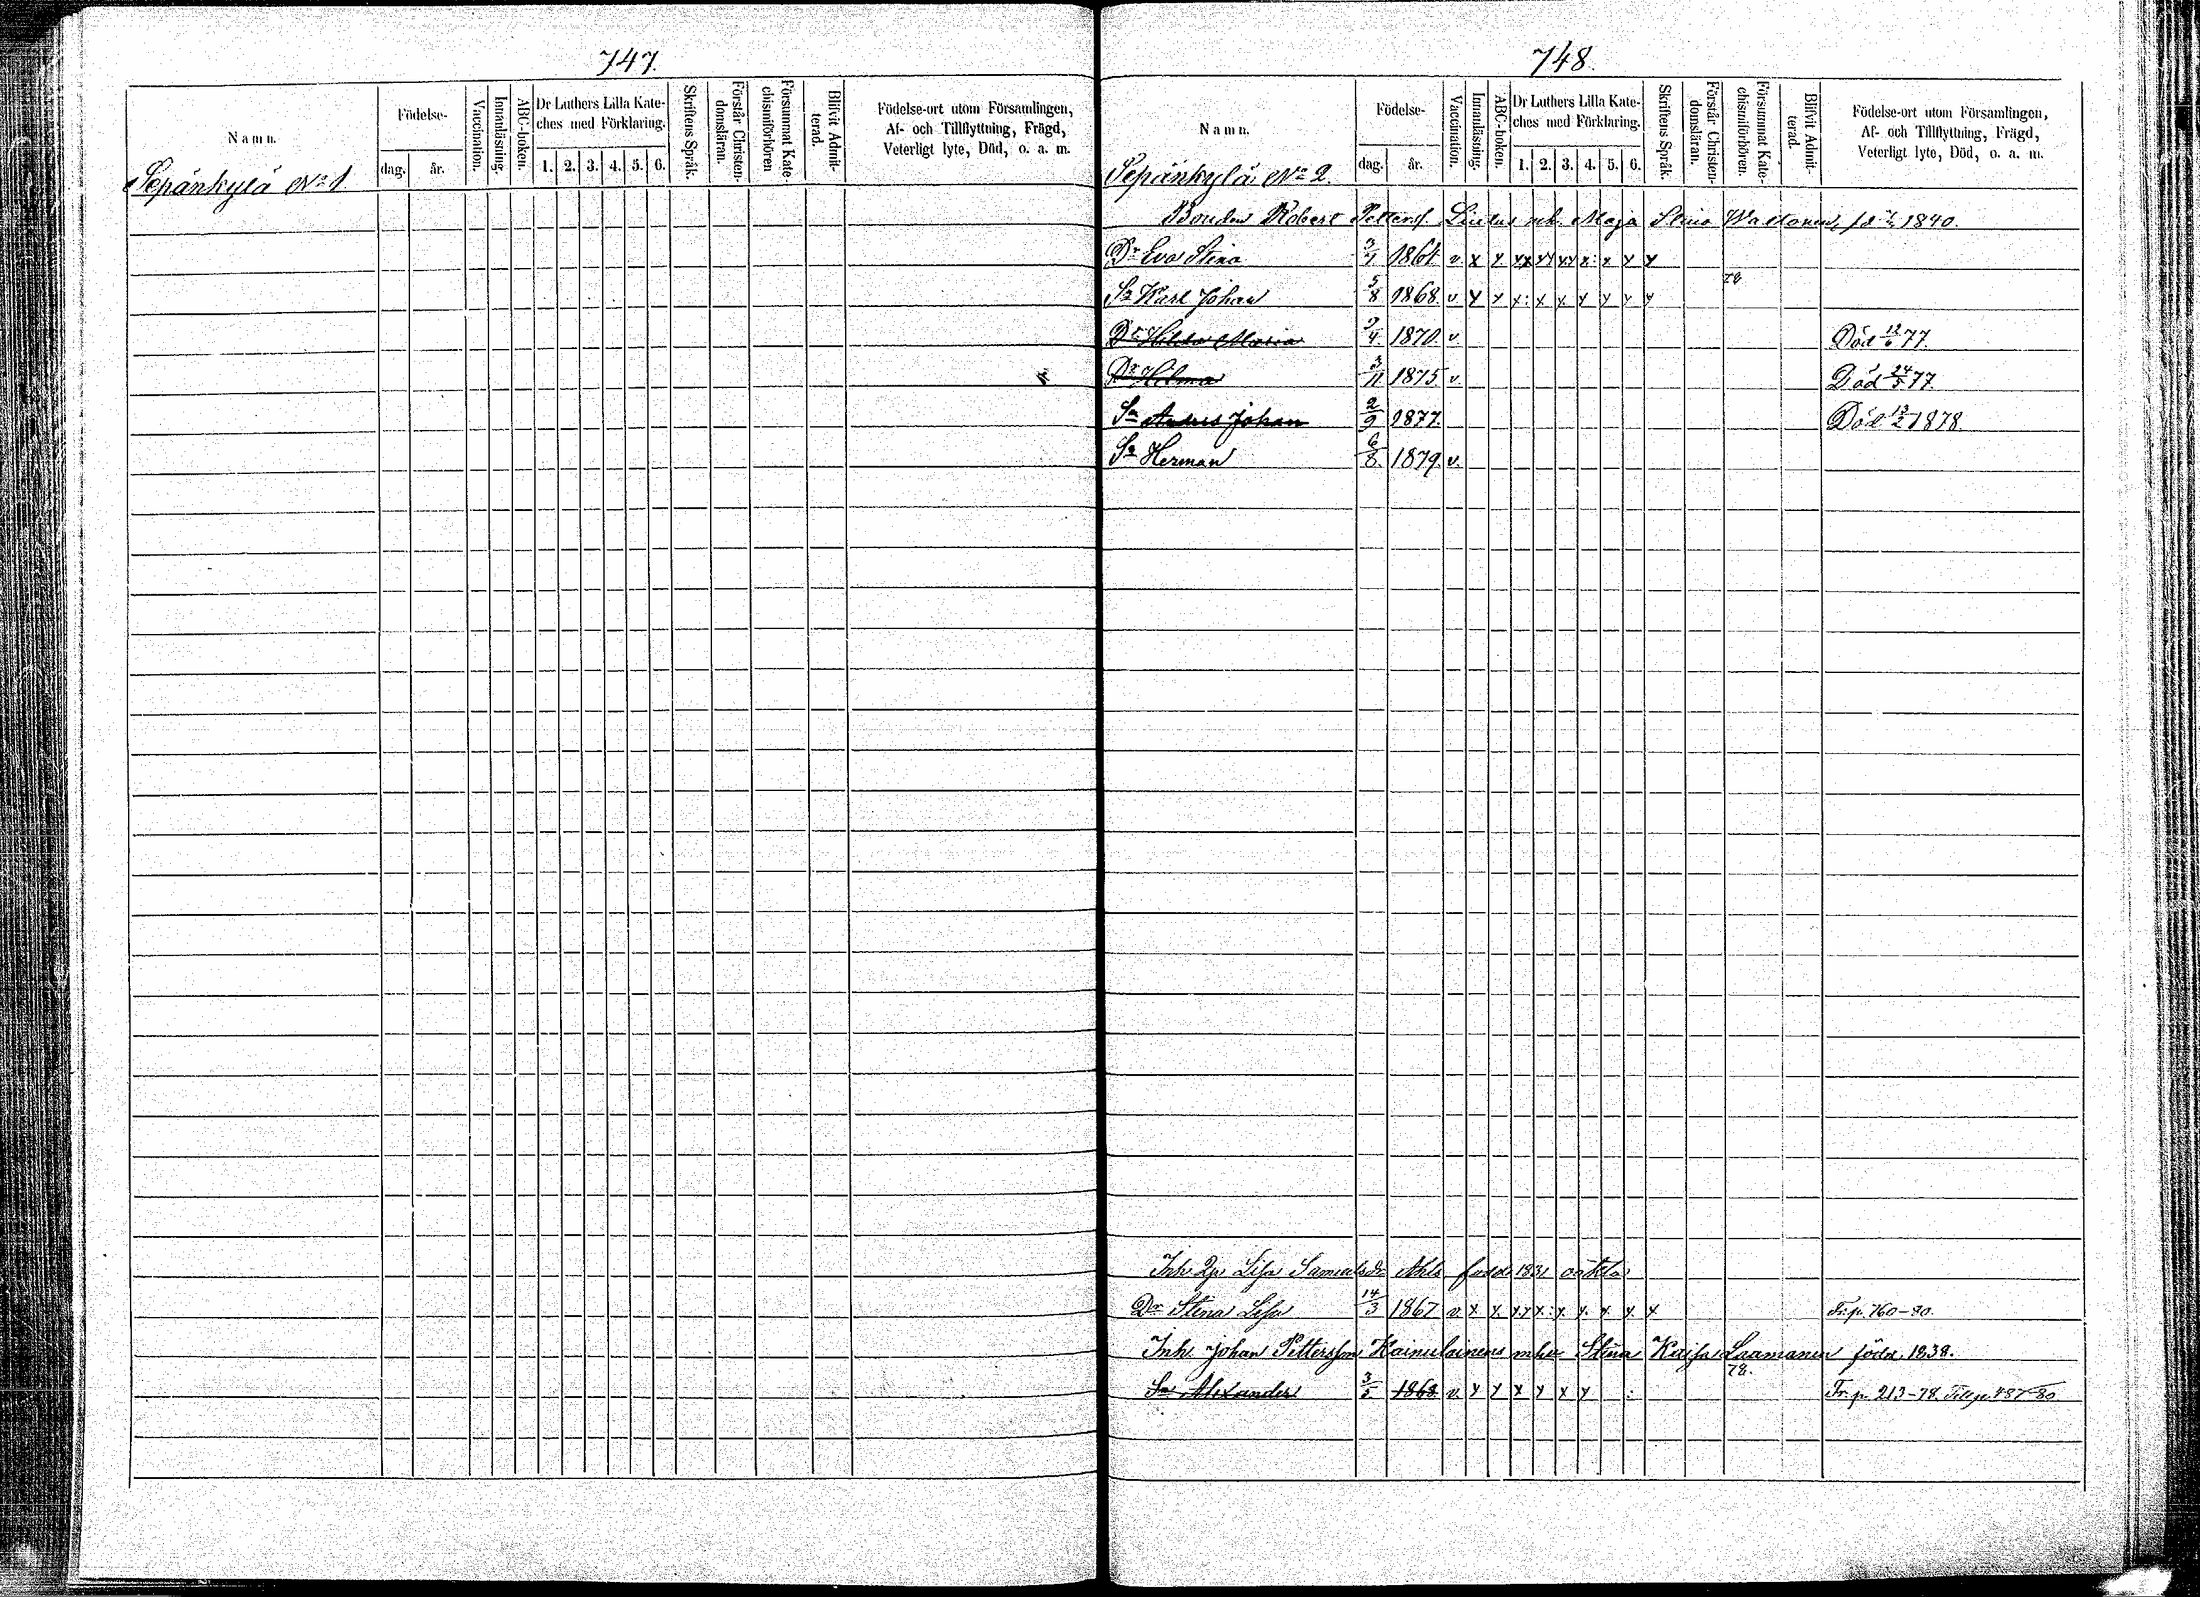 747.
Namn.
Födelse-
dag. år.
Vaccination.
Innanläsning.
ABC-boken.
Dr Luthers Lilla Kate-
ches med Förklaring.
1. 2. 3. 4. 5. 6.
Skriftens Språk.
Förstår Christen-
domsläran.
Försummat Kate-
chismiförhören
Blifvit Admit-
terad.
Födelse-ort utom Församlingen,
Af- och Tillflyttning, Frägd,
Veterligt lyte, Död, o. a. m.
Sepänkylä No 1
748.
Namn.
Födelse-
dag. år.
Vaccination.
Innanläsning.
ABC-boken.
Dr Luthers Lilla Kate-
ches med Förklaring.
1. 2. 3. 4. 5. 6.
Skriftens Språk.
Förstår Christen-
domsläran.
Försummat Kate-
chismiförhören.
Blifvit Admit-
terad.
Födelse-ort utom Församlingen,
Af- och Tillflyttning, Frägd,
Veterligt lyte, Död, o. a. m.
Sepänkylä No 2.
Bonden Robert Petterss. Maja Stina 1840.
Dr Eva Stina 1861 v x x xx xx xx x x x x
78
Sn Karl Johan 5/8 1868 v x x x: x x x x x x
Dr Hilda Maria 1870. v. Död 77.
Dr Hilma 3/11 1875 v. Död 24/5 77.
Sn Andres Johan 2/9 1877. Död 1878.
Sn Herman 6/8 1879. v.
Inh. Lisa Samuelsdr född 1831
Dr Stina Lisa 14/3 1867 v. x x xx x: x x. x x. x Fr. p. 760-80.
Inh. Johan Pettersson Kainulainens Stina Kaisa Laamanen född 1838.
78.
Sn Alexander 3/5 1868 v. x x x x x x : Fr. p. 213-78. Till p. 487-80